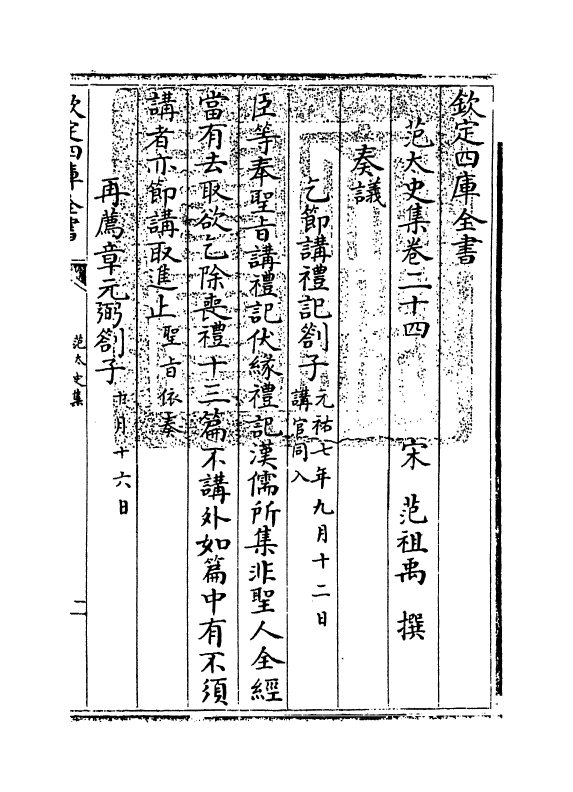 欽定四庫全書
范太史集卷二十四
宋 范祖禹 撰
奏議
乞節講禮記劄子元祐七年九月十二日講官同入
臣等奉聖旨講禮記伏緣禮記漢儒所集非聖人全經
當有去取欲乞除喪禮十三篇不講外如篇中有不須
講者亦節講取進止聖旨依奏
再薦章元弼劄子 月十六日
欽定四庫全書
范太史集